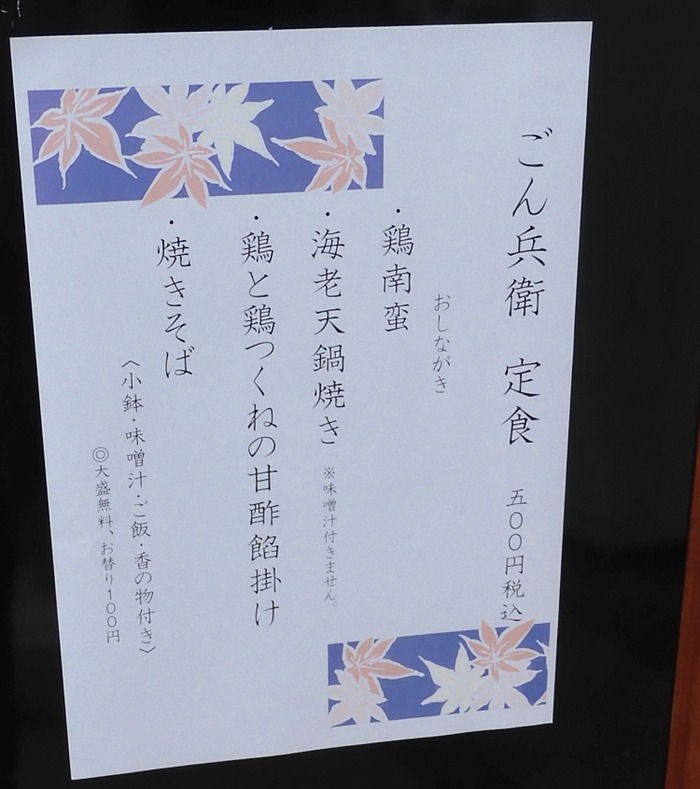 ごん兵衛　定食　五００円税込
おしながき
・鶏南蛮
・海老天鍋焼き　※味噌汁付きません。
・鶏と鶏つくねの甘酢餡掛け
・焼きそば
〈小鉢・味噌汁・ご飯・香の物付き〉
◎大盛無料、お替り１００円